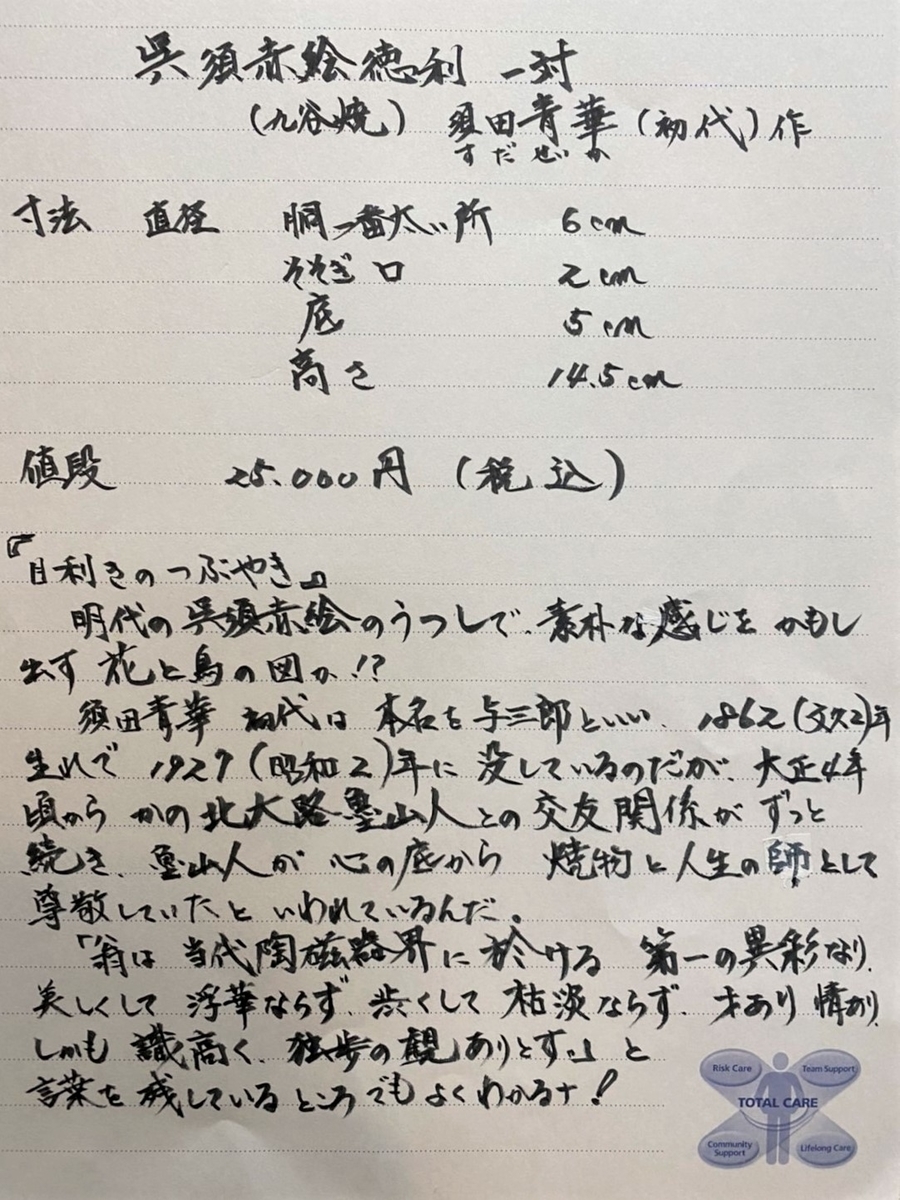 呉須赤絵徳利 一対
(九谷焼) 須田青華(初代)作
すだせいか
寸法 直径 胴一番太い所 6cm
そそぎ口 2cm
底 5cm
高さ 14.5cm
値段 25.000円 (税込)
『目利きのつぶやき』
明代の呉須赤絵のうつしで、素朴な感じをかもし
出す花と鳥の図か!?
須田青華 初代は本名を与三郎といい、1862(文久2)年
生れで 1927(昭和2)年に没しているのだが、大正4年
頃から かの北大路魯山人との交友関係がずっと
続き、魯山人が心の底から 焼物と人生の師として
尊敬していたといわれているんだ。
「翁は当代陶磁器界に於ける 第一の異彩なり、
美しくして浮華ならず、渋くして枯淡ならず、才あり情あり、
しかも識高く、独歩の観ありとす。」と
言葉を残しているところでもよくわかるナ!
Risk Care
Team Support
TOTAL CARE
Community Support
Lifelong Care